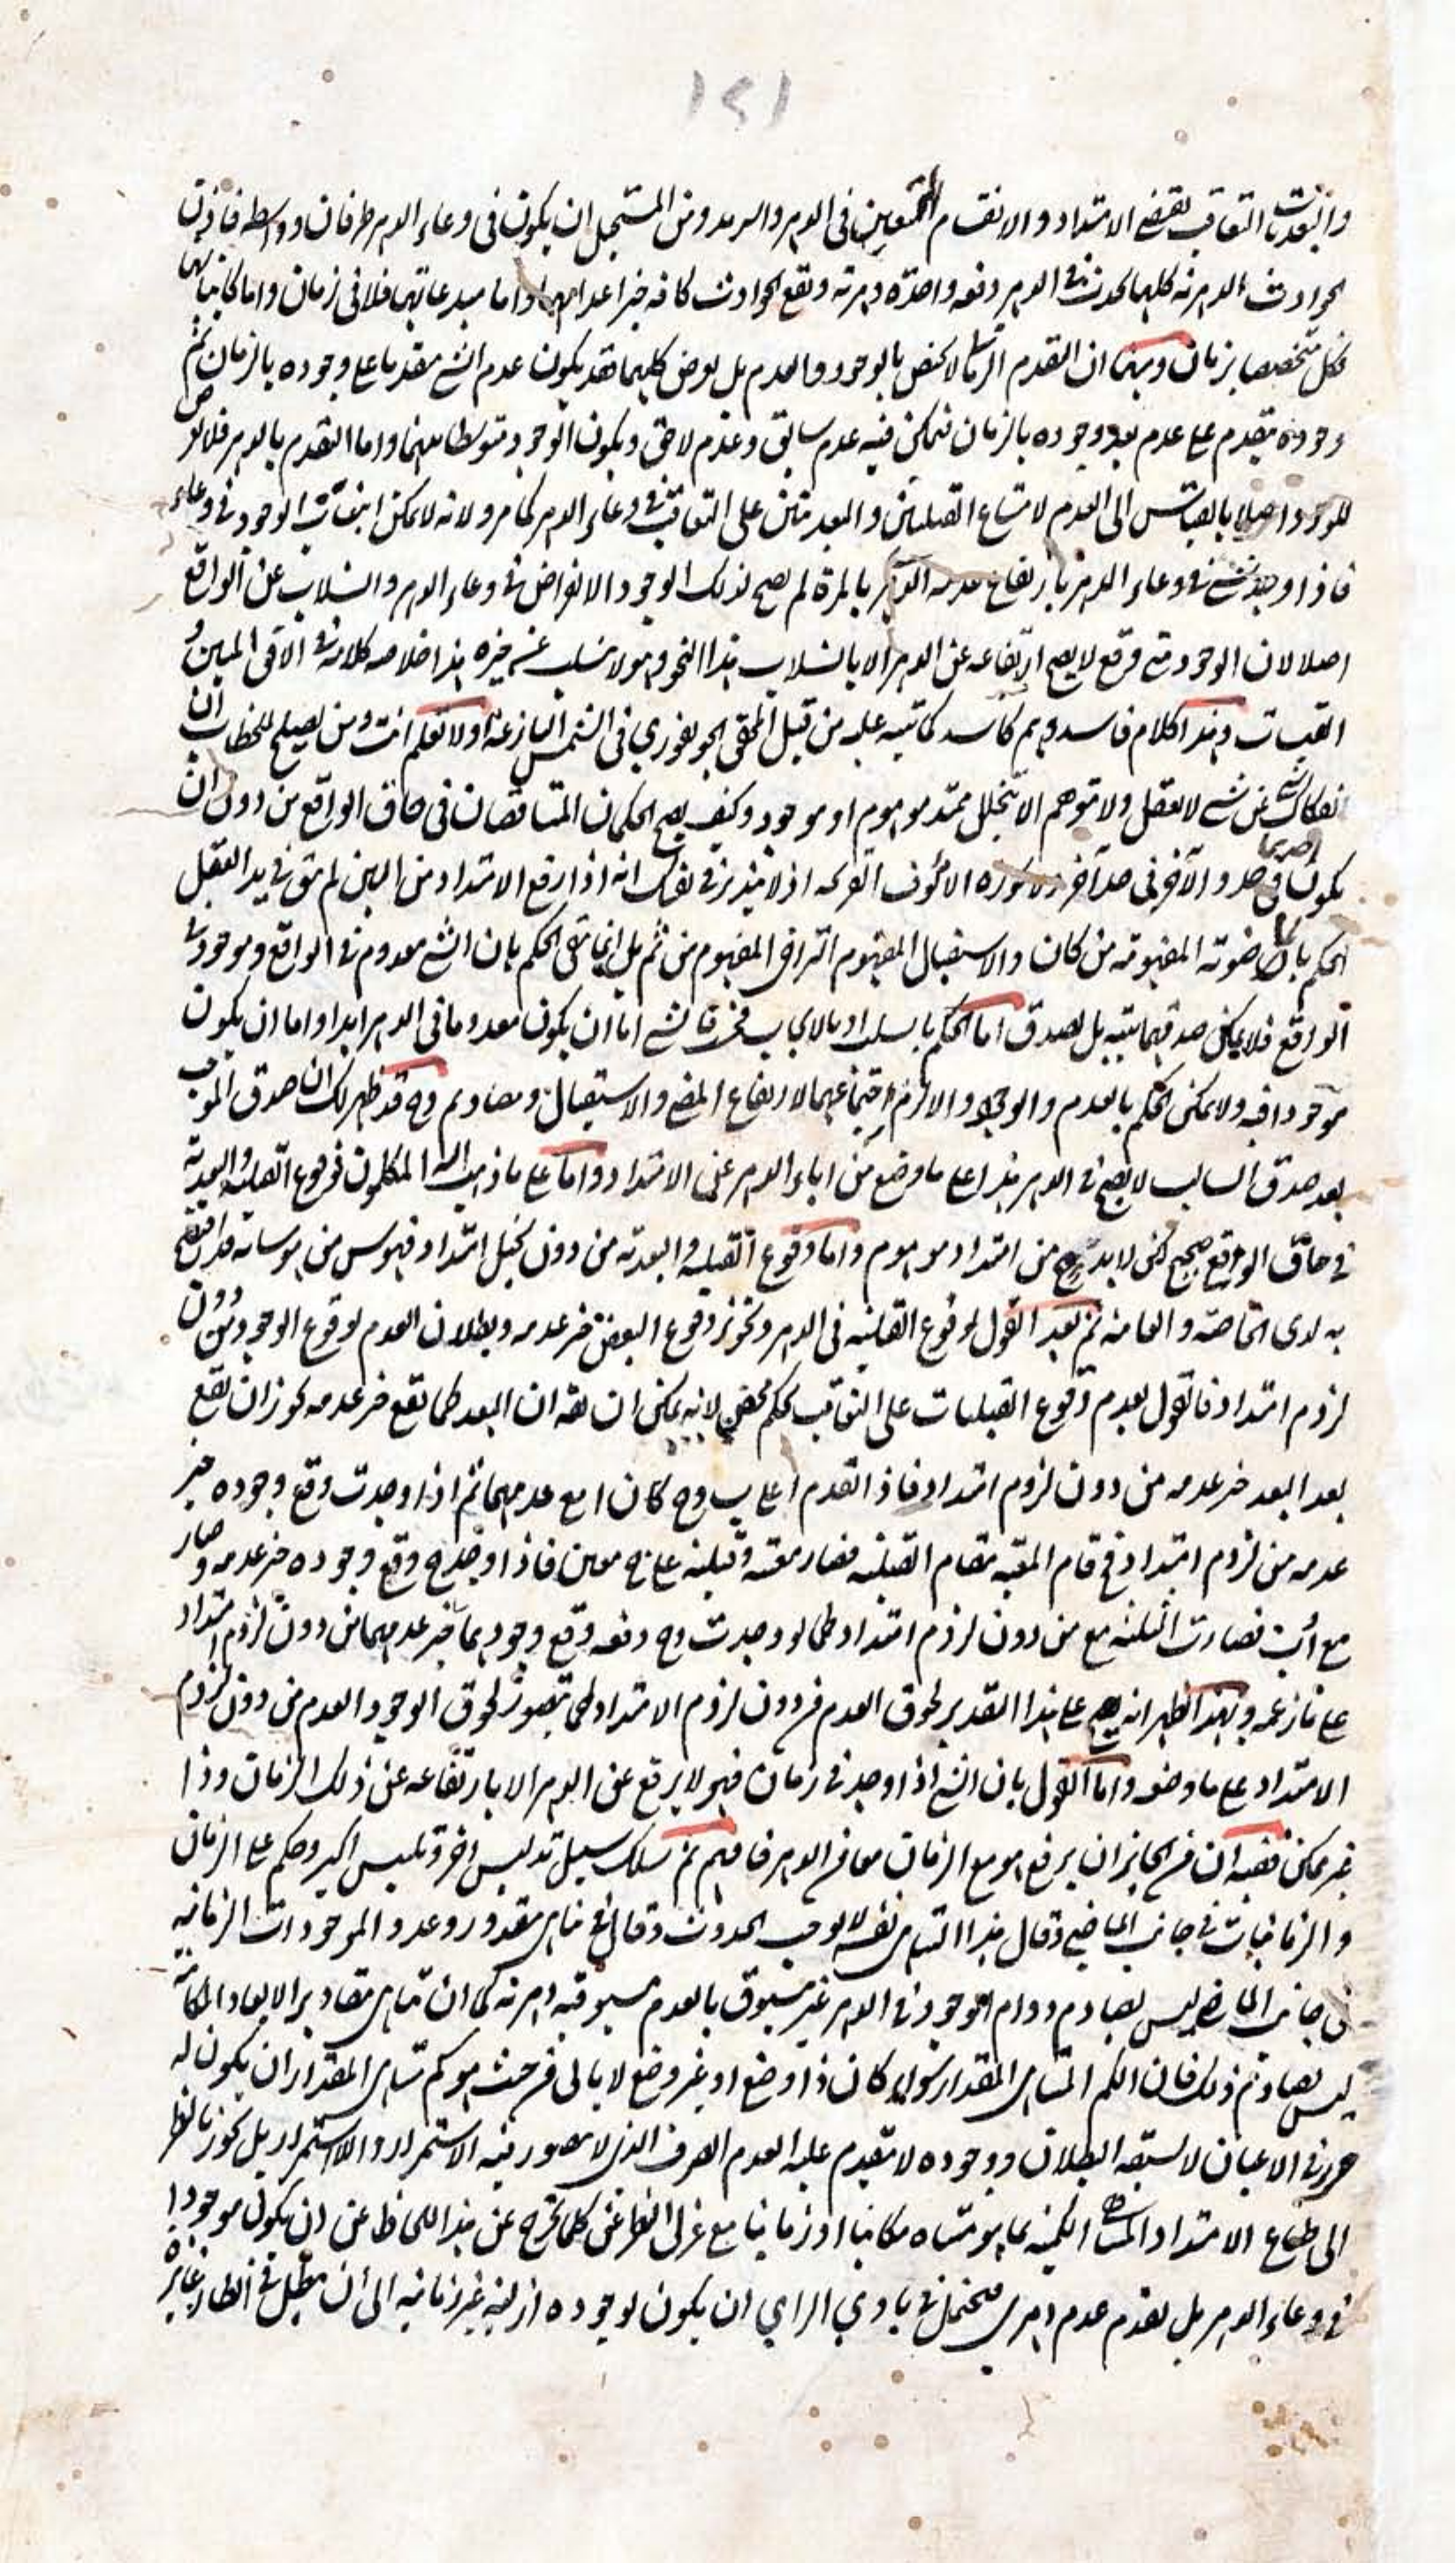 ١٢١
والبعديات التعاقب يقتضي الامتداد والانقسام الممتنعين في الدهر والسرمد ومن المستحيل ان يكون في وعاء الدهر طرفان ووسطه فاذن
الحوادث الدهرية كلها تحدث في الدهر دفعة واحدة دهرية وتقع الحوادث كافة حيز اعدامها واما مبدعاتها فلا في زمان واما كائناتها
فكل متخصصا بزمان ومنها ان التقدم الزماني لا يختص بالوجود والعدم بل يعرض كليهما فقد يكون عدم الشئ مقدما على وجوده بالزمان ثم
وجوده متقدم على عدم بعد وجوده بالزمان فيمكن فيه عدم سابق وعدم لاحق ويكون الوجود متوسطا بينهما واما التقدم بالدهر فلا يعرض
للوجود اصلا بالقياس الى العدم لامتناع القبليتين والبعديتين على التعاقب في وعاء الدهر كما مر ولانه لا يمكن الوجود في وعاء
فاذا وجد شئ في وعاء الدهر بارتفاع عدمه بالمرة لم يصح لذلك الوجود الانقراض في وعاء الدهر والانسلاب عن الواقع
اصلا لان الوجود متى وقع لا يصح ارتفاعه عن الدهر الا بانسلاب هذا النحو وهو لا ينسلب عن حيزه هذا خلاصة كلامه في الافق المبين و
القبسات وهذا كلام فاسد ووهم كاسد كما تنبه عليه من قبل المحقق الجونفوري في الشمس البازغة اولا تعلم انت ومن يصلح للخطاب ان
انفكاك شئ عن شئ لا يعقل ولا يتوهم الا بتخلل ممتد موهوم او موجود وكيف يصح الحكمان المتناقضان في حاق الواقع من دون ان
يكون احدهما في حد والآخر في حد آخر الا مؤوف القريحة اذ لا في نفسك انه اذا رفع الامتداد من البين لم يبق في يد العقل
الحكم بالماضوية المفهومة من كان والاستقبال المفهوم التراخي المفهوم من ثم بل انما بقي الحكم بان الشئ معدوم في الواقع وموجود في
الواقع فلا يمكن صدقهما بتة بل يصدق اما الحكم بالسلب او بالايجاب فحينئذ الشئ اما ان يكون معدوما في الدهر ابدا واما ان يكون
موجودا فيه ولا يمكن الحكم بالعدم والوجود والا لزم اجتماعهما لارتفاع المضي والاستقبال ومضاهيهم وح قد ظهر لك ان صدق الموجب
بعد صدق السالب لا يصح في الدهر هذا على ما وضع من اباء الدهر عن الامتداد واما على ما ذهب اليه المتكلمون فوقوع القبلية والبعدية
في حاق الواقع صحيح لكن لا بد ح من امتداد موهوم واما وقوع القبلية والبعدية من دون تخيل امتداد فهوس من هوساته قد افتضح
به لدى الخاصة والعامة ثم بعد القول لوقوع القبلية في الدهر وتجويز وقوع البعض حيز عدمه وبطلان العدم لوقوع الوجود من دون
لزوم امتداد فالقول بعدم وقوع القبليات على التعاقب تحكم محض لانه يمكن ان يقه ان البعد كما تقع حيز عدمه يجوز ان تقع
بعد البعد حيز عدمه من دون لزوم امتداد فاذا تقدم ا على ب وح كان ا مع عدمهما ثم اذا وجدت وقع وجوده حيز
عدمه من لزوم امتداد فح قام المعية مقام القبلية فصار معية وقبلية على ح معين فاذا وجد ح وقع وجوده حيز عدمه وصار
مع ا ب فصارت الثلثة مع من دون لزوم امتداد كما لو وجدت وح دفعة وقع وجودهما حيز عدمهما من دون لزوم امتداد
على ما زعمه وبهذا ظهر انه يصح على هذا التقدير لحوق العدم من دون لزوم الامتداد كما يتصور لحوق الوجود العدم من دون لزوم
الامتداد على ما وضعه واما القول بان الشئ اذا وجد في زمان فهو لا يرفع عن الدهر الا بارتفاعه عن ذلك الزمان وذا
غير ممكن ففيه ان من الجائز ان يرفع هو مع الزمان معا من الدهر فافهم ثم سلك سبيل تدليس آخر وتلبيس اكبر وحكم على الزمان
والزمانيات في جانب الماضي وقال هذا التناهي نفسه لا يوجب الحدوث وقال تناهي مقدور وعدد الموجودات الزمانية
في جانب الماضي ليس يصادم دوام الوجود في الدهر غير مسبوق بالعدم مسبوقية دهرية كما ان تناهي مقادير الابعاد المكانية
ليس يصادم ذلك فان الكم المتناهي المقدار سواء كان ذا وضع او غير وضع لا يابى من حيث هو كم متناهي المقدار ان يكون له
في الاعيان لا يسبقه البطلان ووجوده لا يتقدم عليه العدم الصرف الذي لا يتصور فيه الاستمرار واللااستمرار بل يجوز بالنظر
الى طباع الامتداد المتناهي الكمية بما هو متناه مكانيا او زمانيا مع عزل النظر عن كلما يخرج عن هذا اللحاظ عن ان يكون موجودا
في وعاء الدهر بل تقدم عدم دهري فيحتمل في بادي الراي ان يكون لوجوده ازلية غير زمانية الى ان